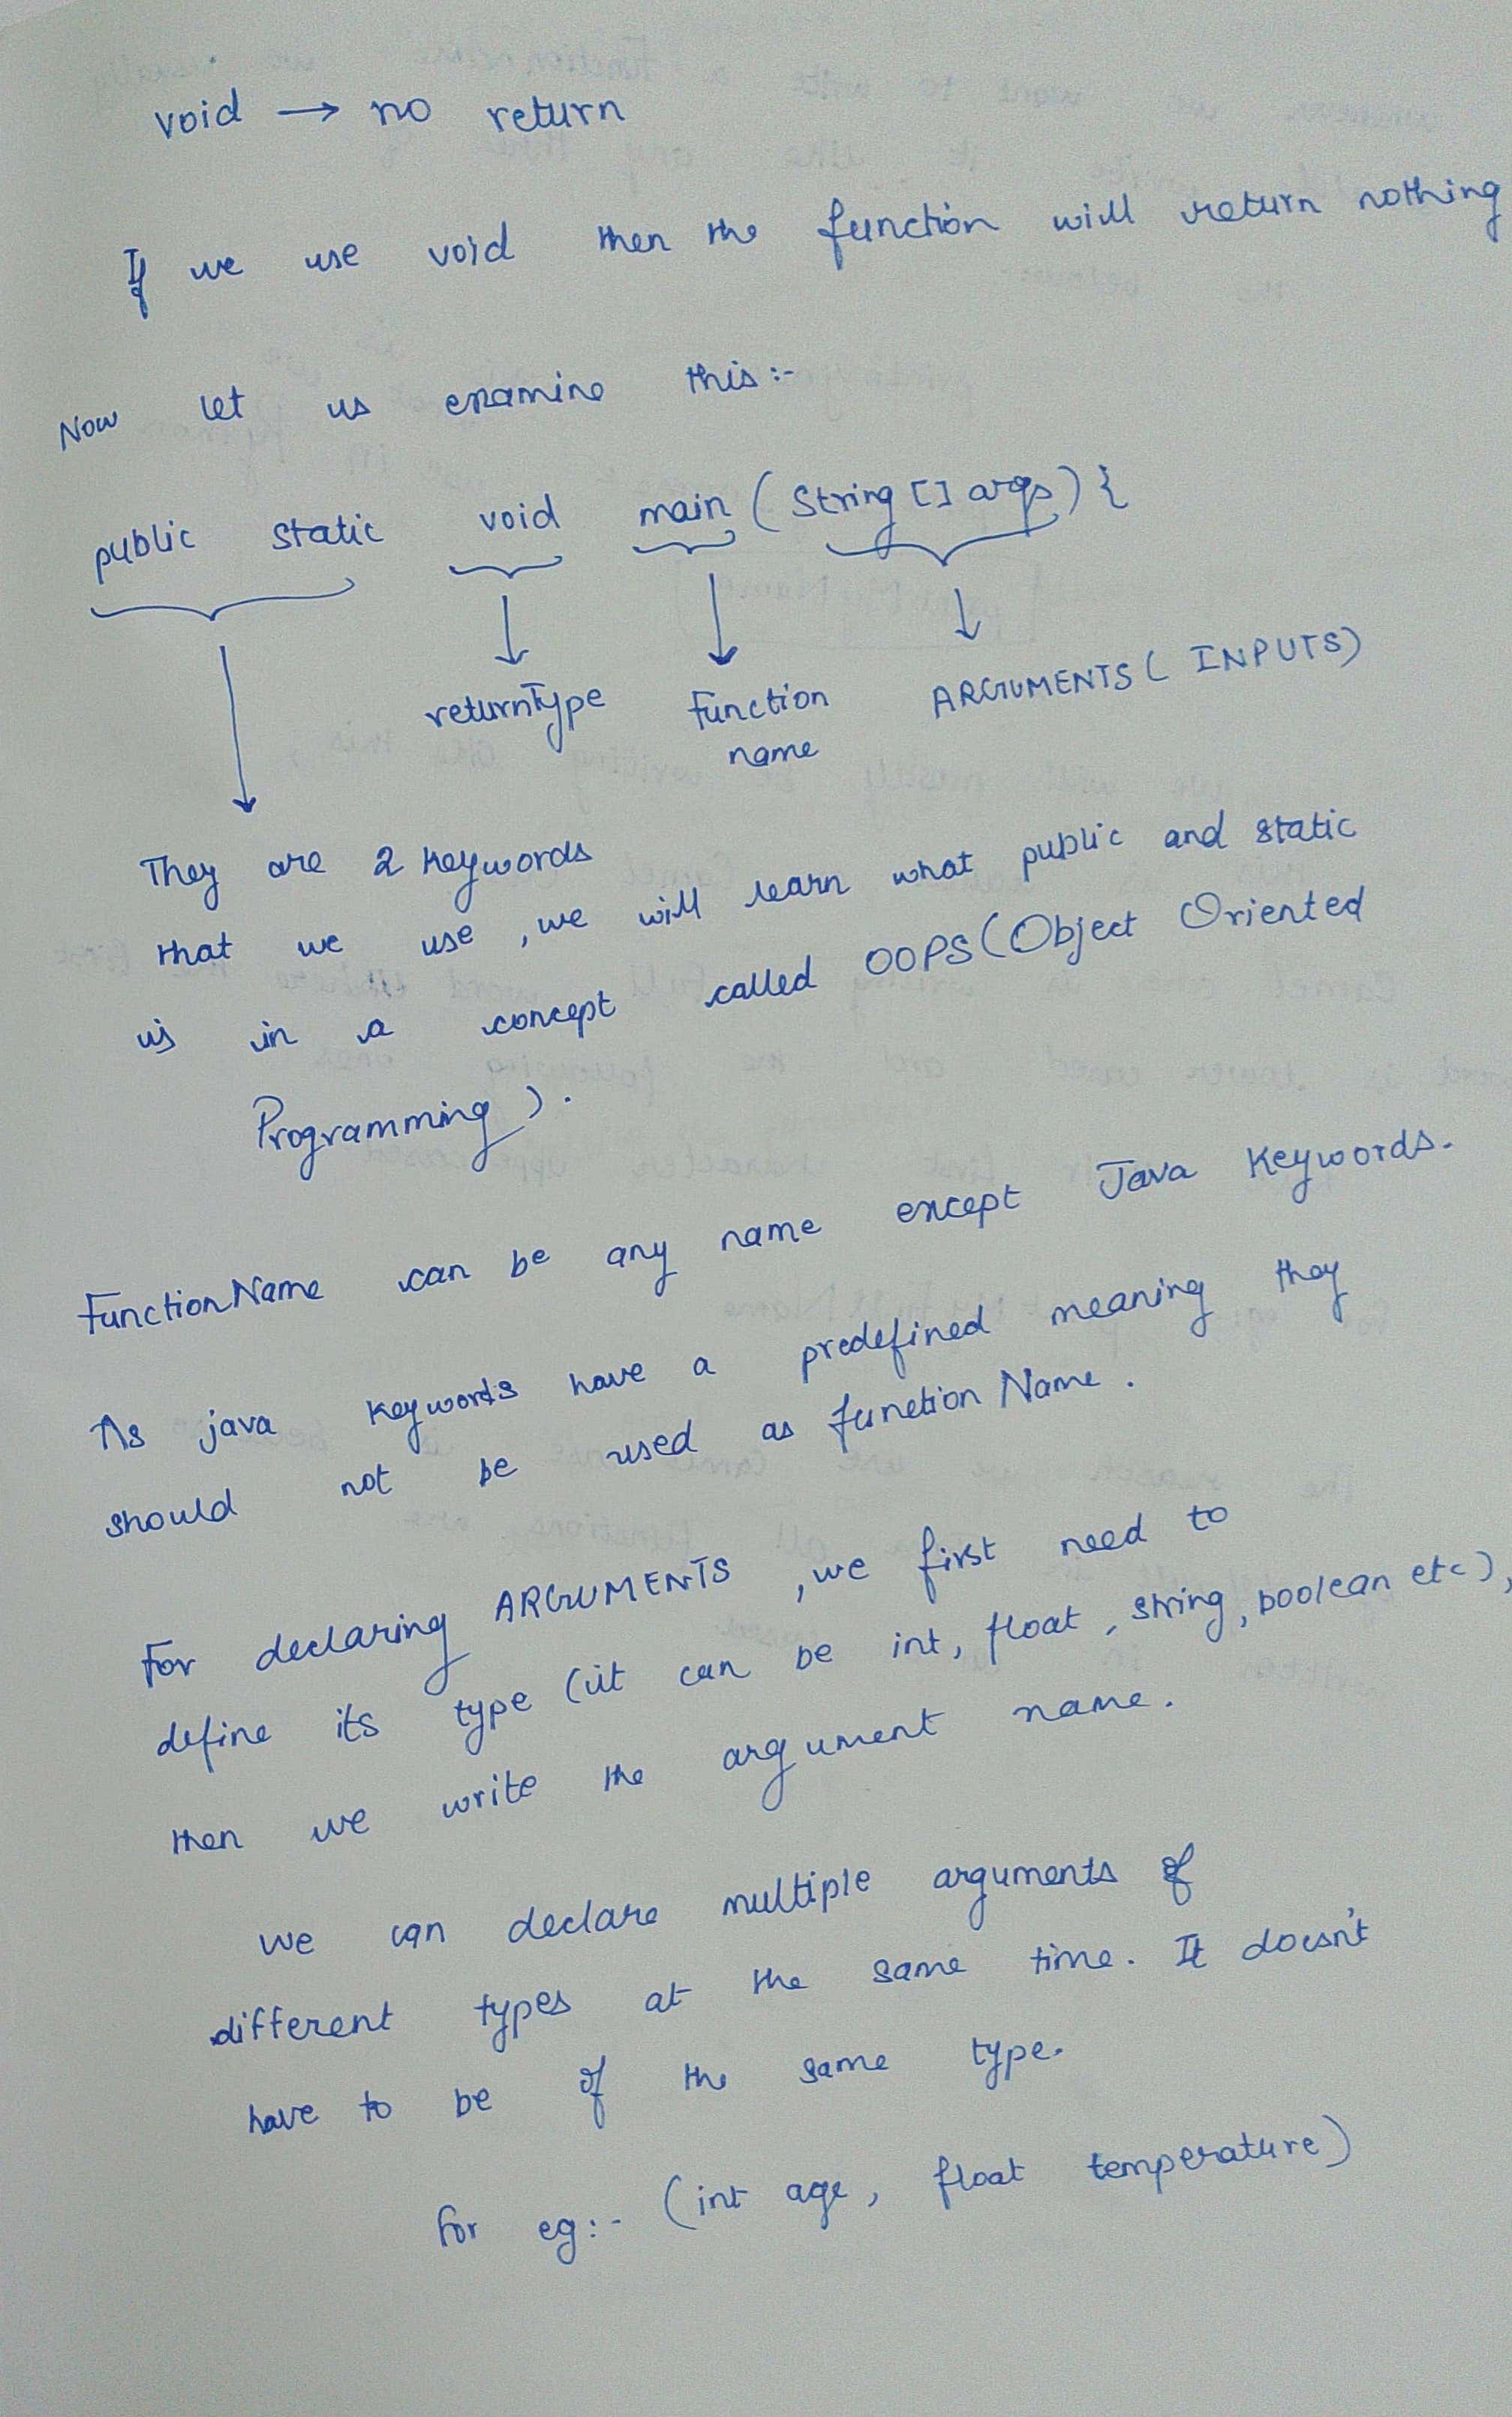 void → no return
If we use void then the function will return nothing
Now let us examine this:-
public static void main (String [] args) {
returnType function name ARGUMENTS ( INPUTS)
They are 2 keywords
that we use, we will learn what public and static
is in a concept called OOPS (Object Oriented
Programming).
FunctionName can be any name except Java Keywords.
As java keywords have a predefined meaning they
should not be used as function Name.
For declaring ARGUMENTS, we first need to
define its type (it can be int, float, string, boolean etc),
then we write the argument name.
we can declare multiple arguments of
different types at the same time. It doesn't
have to be of the same type.
for eg:- (int age, float temperature)